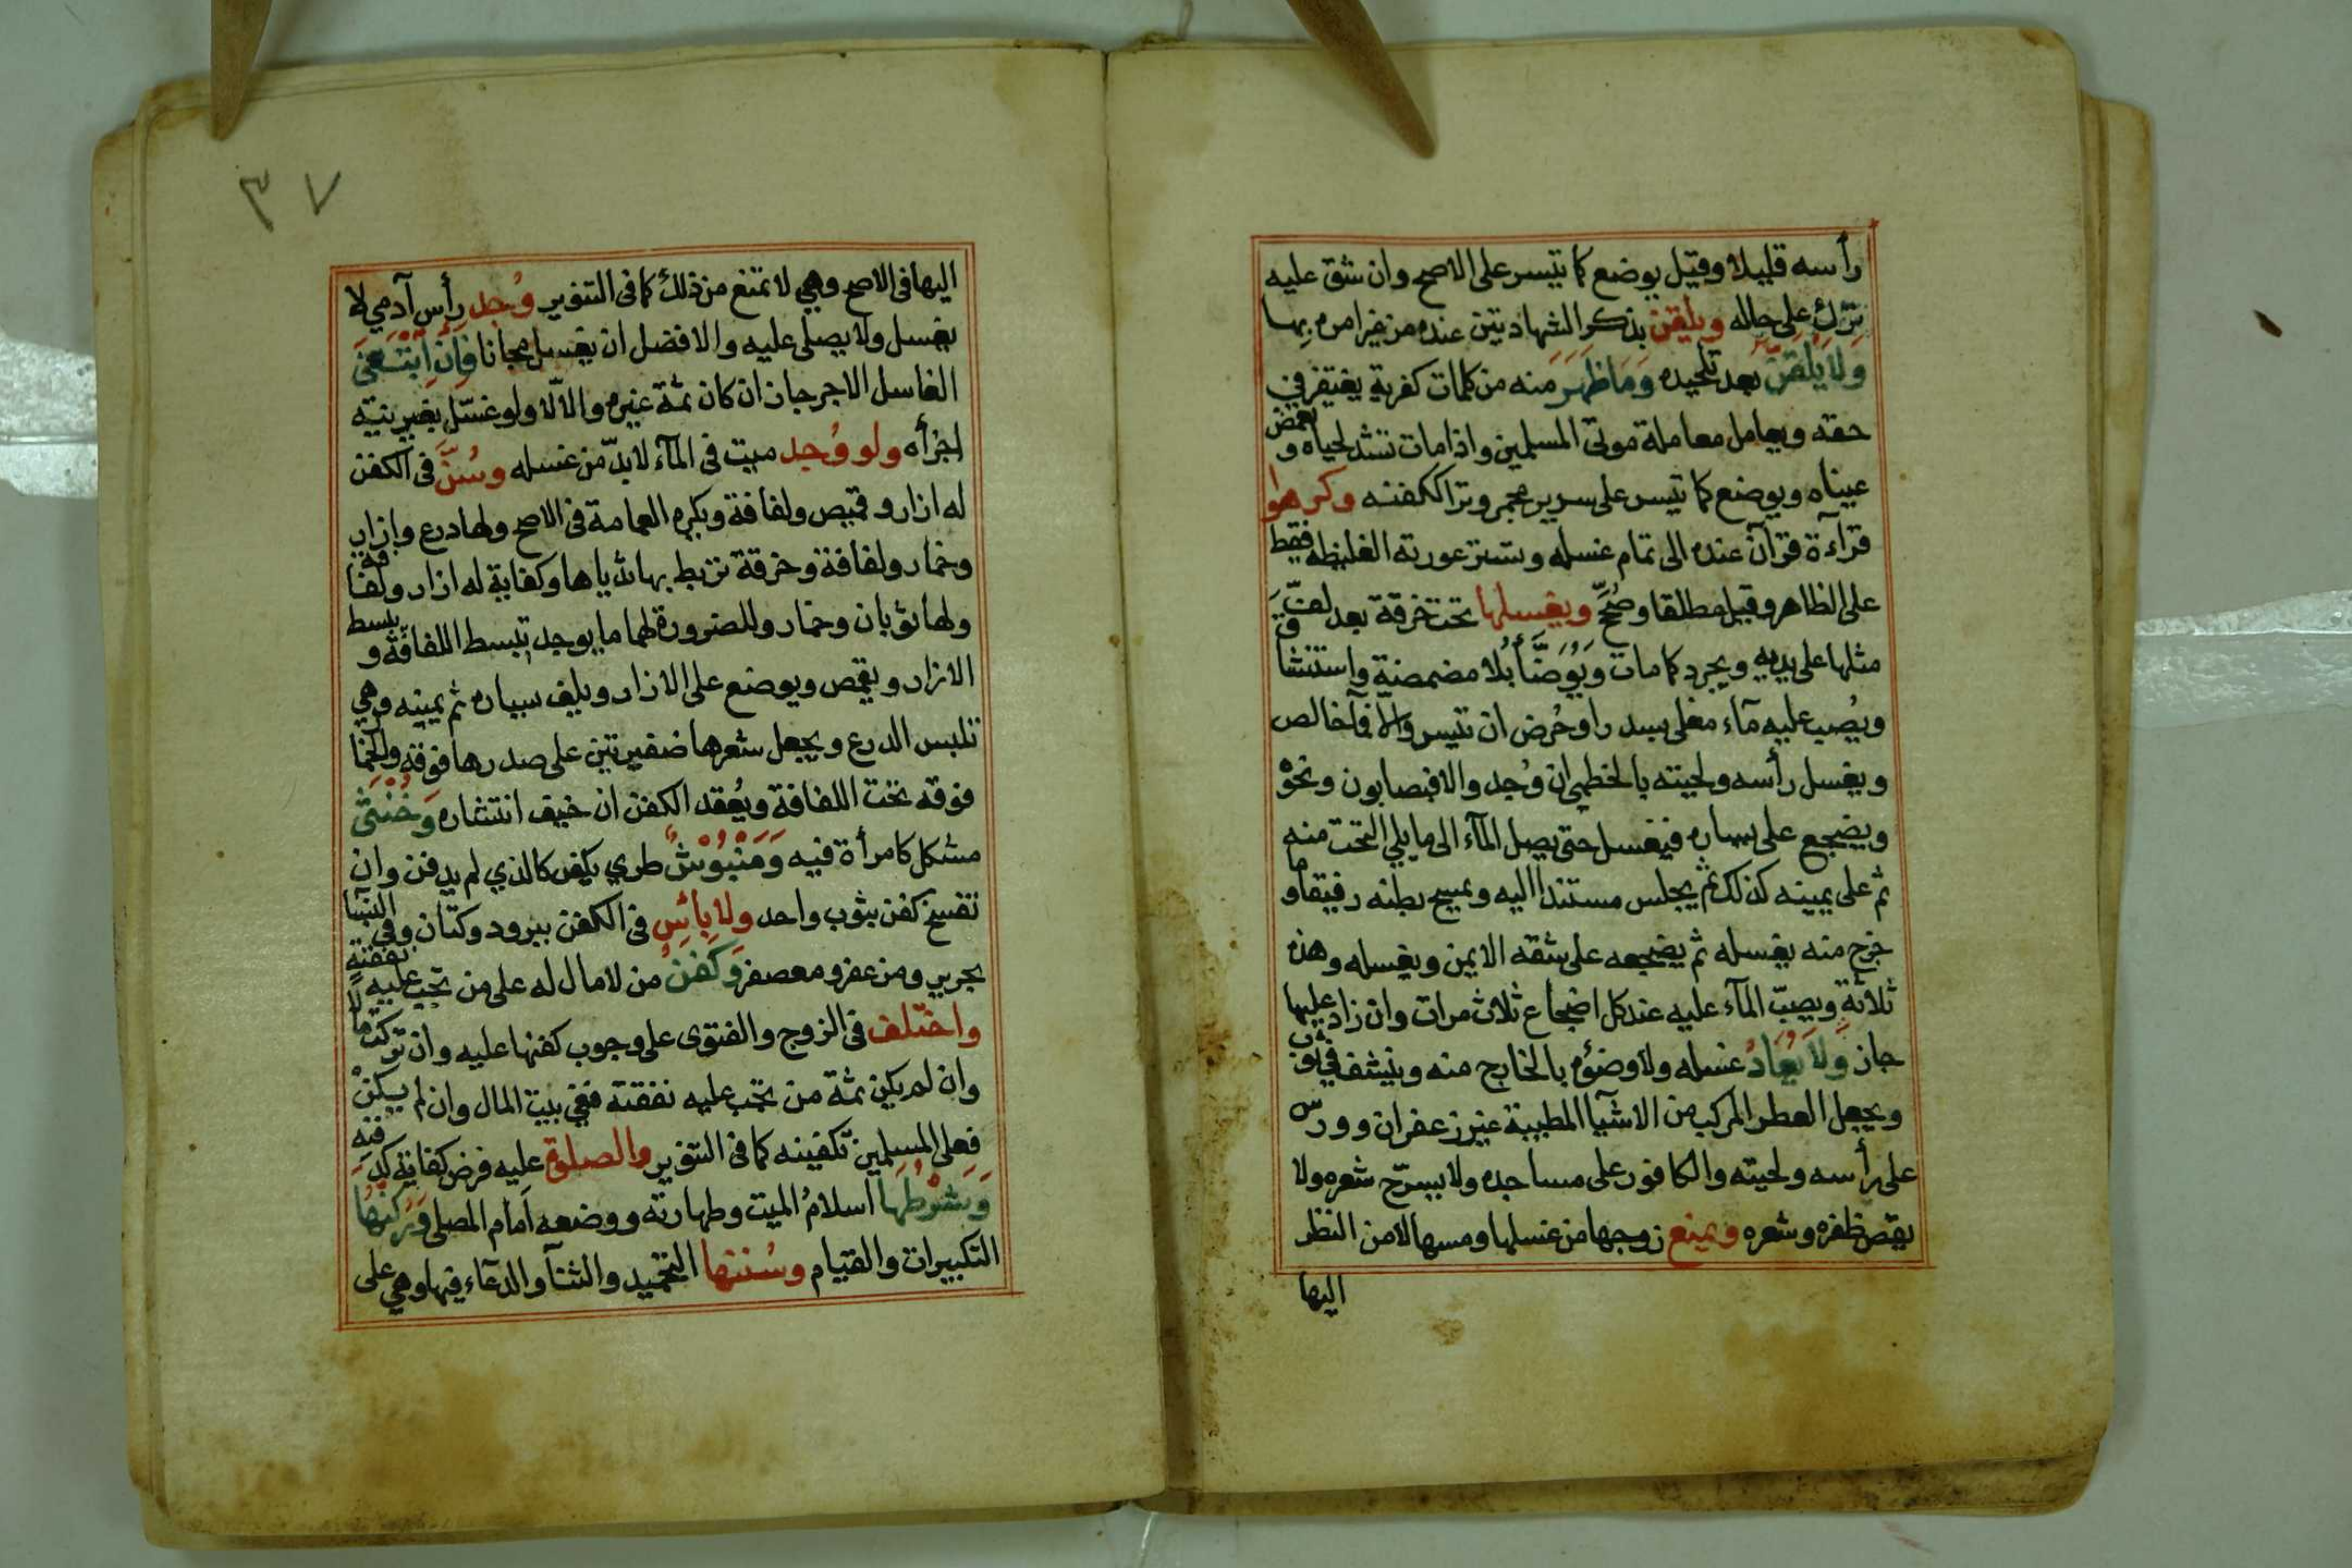 رأسه قليلا وقيل يوضع كما تيسر على الاصح وان شق عليه
ترك على حاله ويلقن بذكر الشهادتين عنده من غير امره بها
ولا يلقن بعد تلحيده وما ظهر منه من كلمات كفرية يغتفر في
حقه ويعامل معاملة موتى المسلمين واذا مات تشد لحياه وتغمض
عيناه ويوضع كما تيسر على سرير مجمر وترا ككفنه وكرهوا
قرآءة قرآن عنده الى تمام غسله وتستر عورته الغليظة فقط
على الظاهر وقيل مطلقا وصُحِّح ويغسلها تحت خرقة بعد لف
مثلها على يديه ويجرد كما مات ويُوَضَّأ بُلا مضمضة واستنشاق
ويُصب عليه مآء مغلى بسدر او حُرض ان تيسر والا فآ خالص
ويغسل رأسه ولحيته بالخطمى ان وُجد والا فبصابون ونحوْ
ويضجع على يساره فيغسل حتى يصل المآء الى ما يلي التحت منه
ثم على يمينه كذلك ثم يجلس مستندا اليه ويمسح بطنه رفيقا وما
خرج منه يغسله ثم يضجعه على شقه الايمن ويغسله وهذه
ثلاثة ويصبّ المآء عليه عند كل اضجاع ثلاث مرات وان زاد عليها
جاز ولا يُعَادُ غسله ولا وضؤه بالخارج منه وينشف في ثوب
ويجعل العطر المركب من الاشيآ المطيبة غير زعفران وورس
على رأسه ولحيته والكافور على مساجده ولا يسرّح شعره ولا
يقص ظفره وشعره ويمنع زوجها من غسلها ومسها لا من النظر
اليها
٣٧
اليها في الاصح وهي لا تمنع من ذلك كما في التنوير وُجد رأس آدمي لا
يغسل ولا يصلى عليه والافضل ان يغسل مجانا فان ابتغى
الغاسل الاجر جاز ان كان ثمة غيره والا لا ولو غسّل بغير نيته
اجزأه ولو وُجد ميت في المآء لا بدّ من غسله وسُنَّ في الكفن
له ازار وقميص ولفافة ويكره العمامة في الاصح ولها درع وازار
وخمار ولفافة وخرقة تربط بها ثدياها وكفاية له ازار ولفافة
ولها ثوبان وخمار وللضرورة لهما ما يوجد تبسط اللفافة ويبسط
الازار ويقمص ويوضع على الازار ويلف يساره ثم يمينه وهي
تلبس الدرع ويجعل شعرها ضفيرتين على صدرها فوقه والخمار
فوقه تحت اللفافة ويُعقد الكفن ان خيف انتشاره وَخُنْثى
مشكل كامرأة فيه وَمَنْبُوْشٌ طري يكفن كالذي لم يدفن وان
تفسخ كفن بثوب واحد ولا بأس في الكفن ببرود وكتان وفي النسآ
بحرير ومزعفر ومعصفر وَكَفَنُ من لا مال له على من تجب عليه نفقته
واختلف في الزوج والفتوى على وجوب كفنها عليه وان تركت مالا
وان لم يكن ثمة من تجب عليه نفقته ففي بيت المال وان لم يكنْ
فعلى المسلمين تكفينه كما في التنوير والصلوة عليه فرض كفاية كدفنه
وَشَرْطُهَا اسلامُ الميت وطهارته ووضعه اَمام المصلى وَرُكْنُهَا
التكبيرات والقيام وسُنتها التحميد والثنآ والدعآء فيها وهي على